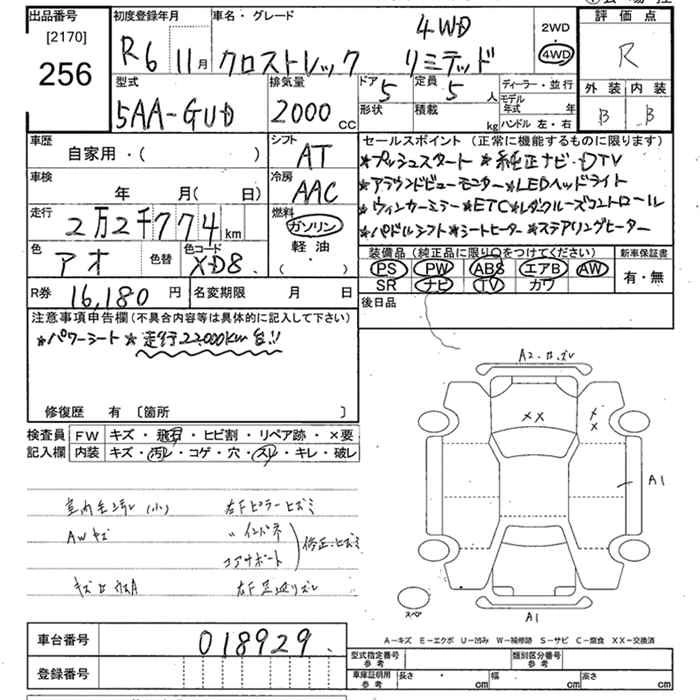 出品番号
[2170]
256
初度登録年月
R6 11月
車名・グレード
4WD
クロストレック リミテッド
2WD
・
4WD
評価点
R
型式
5AA-GUD
排気量
2000 cc
ドア 5
定員 5 人
形状
積載 kg
ディーラー・並行
モデル年式 年
ハンドル 左・右
外装 内装
B B
車歴
自家用・( )
シフト
AT
車検
年 月( 日)
冷房
AAC
走行
2万2千774km
燃料
ガソリン
軽油
( ・ )
色
アオ
色替
色コード
XD8.
R券 16,180円
名変期限 月 日
セールスポイント (正常に機能するものに限ります)
*プッシュスタート *純正ナビ・DTV
*アラウンドビューモニター*LEDヘッドライト
*ウィンカーミラー*ETC*レダクルーズコントロール
*パドルシフト*シートヒーター*ステアリングヒーター
装備品 (純正品に限り○をつけてください)
PS PW ABS エアB AW
SR ナビ TV カワ
新車保証書
有・無
後日品
注意事項申告欄(不具合内容等は具体的に記入して下さい)
*パワーシート*走行22,000km台!!
修復歴 有 〔箇所 〕
検査員記入欄
FW キズ・飛石・ヒビ割・リペア跡・×要
内装 キズ・汚レ・コゲ・穴・スレ・キレ・破レ
(小) 右Fピラーヒズミ
AWキズ 〃インパネ
コアサポート
修正・ヒズミ
A2
XX
XX
A1
スペア
A1
A-キズ E-エクボ U-凹み W-補修跡 S-サビ C-腐食 XX-交換済
車台番号 018929.
登録番号
型式指定番号 参考
類別区分番号 参考
車庫証明用 参考 長さ cm 幅 cm 高さ cm